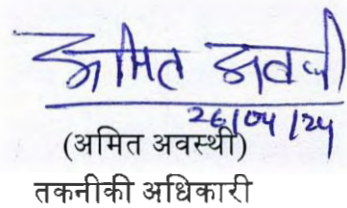 अमित अवस्थी
26/04/24
(अमित अवस्थी)
तकनीकी अधिकारी